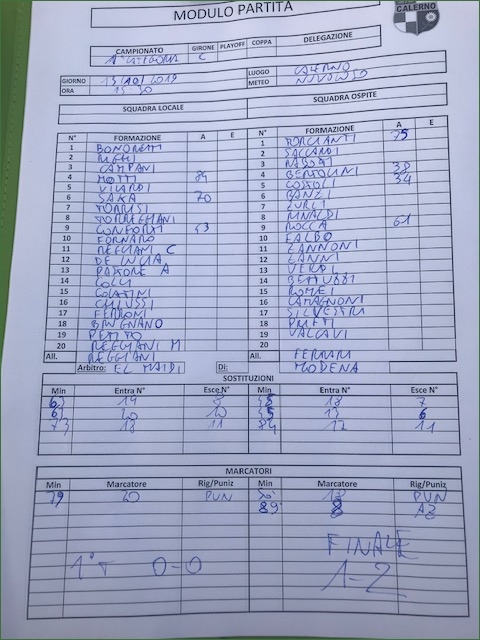 MODULO PARTITA
CALERNO
CAMPIONATO GIRONE PLAYOFF COPPA DELEGAZIONE
1° CATEGORIA C
GIORNO 13/10/2019 LUOGO CALERNO
ORA 15:30 METEO NUVOLOSO
SQUADRA LOCALE SQUADRA OSPITE
N° FORMAZIONE A E N° FORMAZIONE A E
1 BONDRETTI 1 TORCIANTI 75
2 RIGHI 2 SACCARDI
3 CAMPANI 3
4 MOTTI 84 4 BERTOLINI 38
5 VIVARDI 5 COSTOLI 34
6 SAKA 70 6 GANZI
7 TORRISI 7 ZURLI
8 TORREGGIANI 8 RINALDI
9 CONFORTI 53 9 ROCCA 61
10 FORNARO 10 FALBO
11 REGGIANI C 11 ZANNONI
12 DE LUCIA 12 ZANNI
13 PASTORE A 13 VERDI
14 GOLU 14 BERTUZZI
15 GOLATINI 15 ROMEI
16 CHIUSSI 16 CAMPAGNONI
17 FERRONI 17 SILVESTRI
18 BRUGNANO 18 PRETI
19 PETITO 19 VALCAVI
20 REGGIANI M 20
All. REGGIANI All. FERRARI
Arbitro: EL MAIDI Di: MODENA
SOSTITUZIONI
Min Entra N° Esce N° Min Entra N° Esce N°
63 14 18 7
20 10 13 6
73 18 11 84 17 11
MARCATORI
Min Marcatore Rig/Puniz Min Marcatore Rig/Puniz
79 20 PUN 50' 18 PUN
89' 8 AZ
FINALE
1°T 0-0 1-2